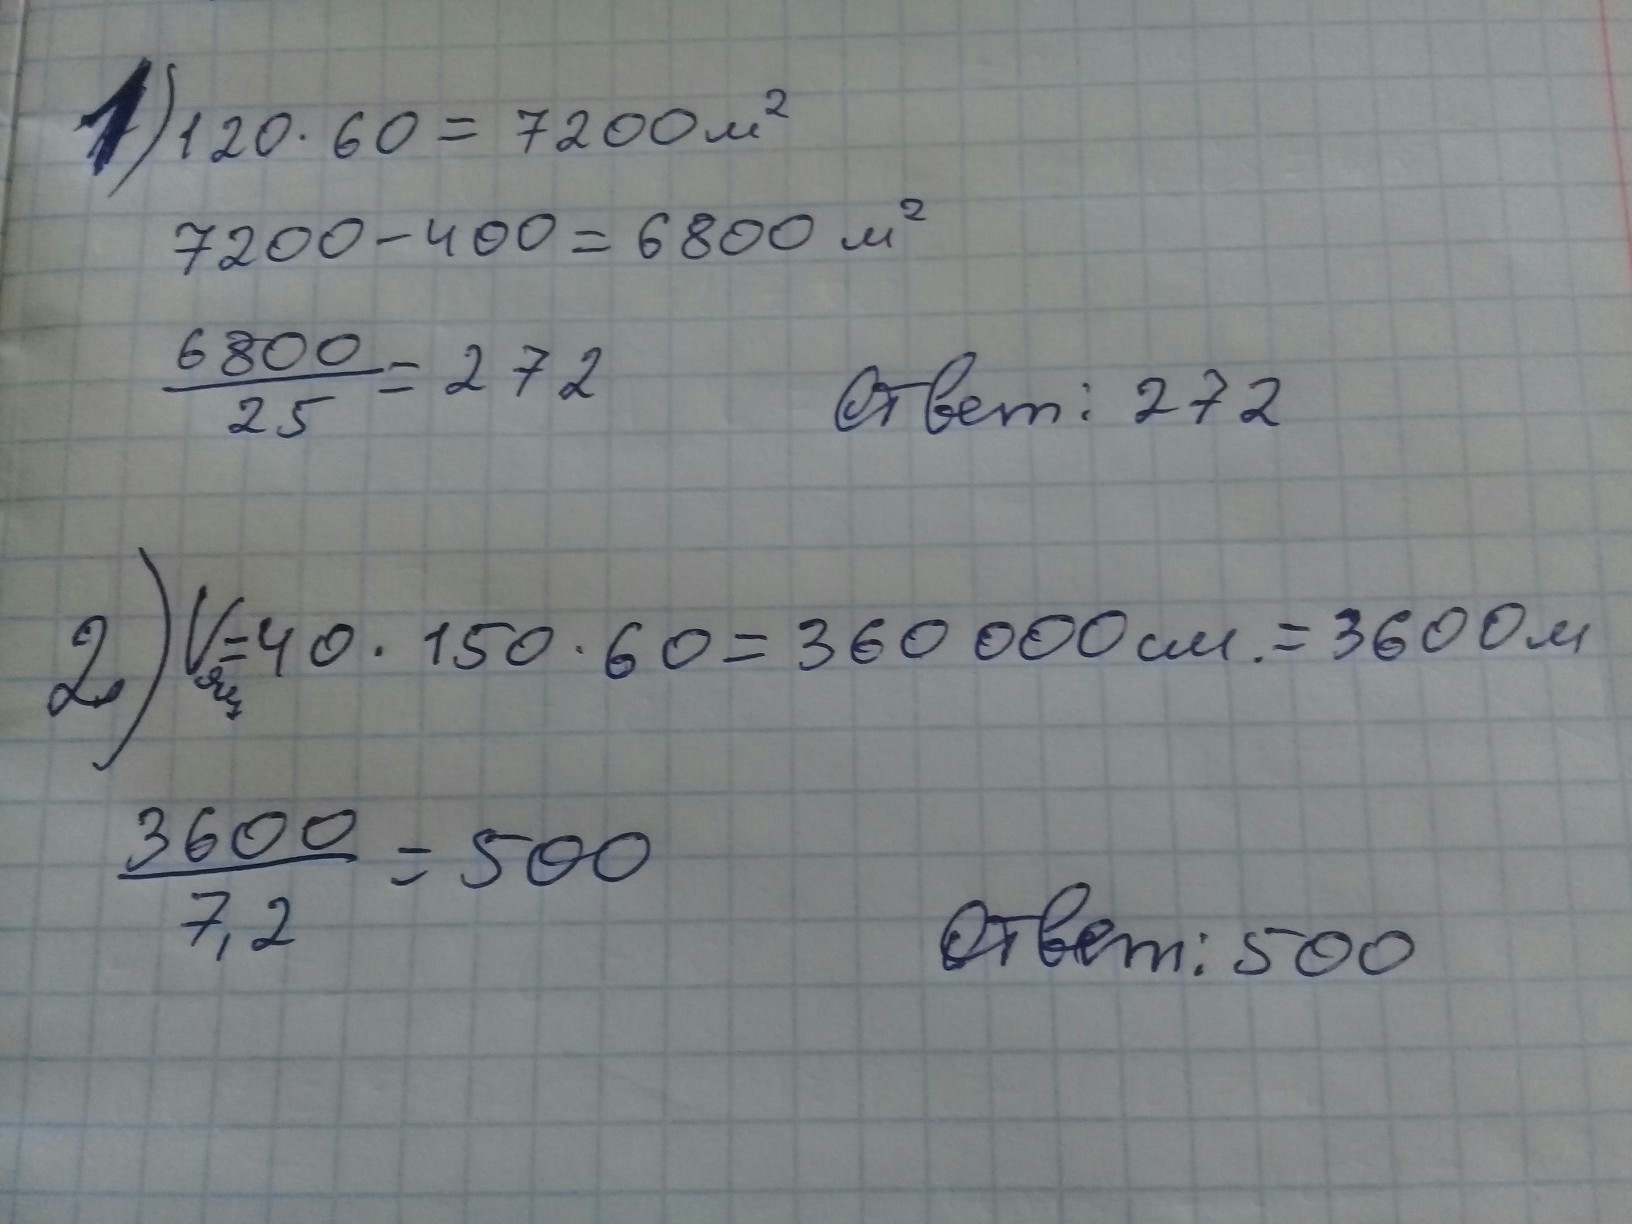 1) 120 · 60 = 7200 м²
7200 − 400 = 6800 м²
6800/25 = 272
Ответ: 272
2) Vящ = 40 · 150 · 60 = 360 000 см. = 3600 м
3600/7,2 = 500
Ответ: 500